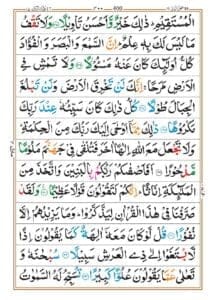 الْمُسْتَقِيْمِ ؕ ذٰلِكَ خَيْرٌ وَّاَحْسَنُ تَاْوِيْلًا ۝ وَلَا تَقْفُ
مَا لَيْسَ لَكَ بِهٖ عِلْمٌ ؕ اِنَّ السَّمْعَ وَالْبَصَرَ وَالْفُؤَادَ
كُلُّ اُولٰٓئِكَ كَانَ عَنْهُ مَسْئُوْلًا ۝ وَلَا تَمْشِ فِي
الْاَرْضِ مَرَحًا ۚ اِنَّكَ لَنْ تَخْرِقَ الْاَرْضَ وَلَنْ تَبْلُغَ
الْجِبَالَ طُوْلًا ۝ كُلُّ ذٰلِكَ كَانَ سَيِّئُهٗ عِنْدَ رَبِّكَ
مَكْرُوْهًا ۝ ذٰلِكَ مِمَّاۤ اَوْحٰۤى اِلَيْكَ رَبُّكَ مِنَ الْحِكْمَةِ ؕ
وَلَا تَجْعَلْ مَعَ اللّٰهِ اِلٰهًا اٰخَرَ فَتُلْقٰى فِيْ جَهَنَّمَ مَلُوْمًا
مَّدْحُوْرًا ۝ اَفَاَصْفٰىكُمْ رَبُّكُمْ بِالْبَنِيْنَ وَاتَّخَذَ مِنَ
الْمَلٰٓئِكَةِ اِنَاثًا ؕ اِنَّكُمْ لَتَقُوْلُوْنَ قَوْلًا عَظِيْمًا ۝ وَلَقَدْ
صَرَّفْنَا فِيْ هٰذَا الْقُرْاٰنِ لِيَذَّكَّرُوْا ؕ وَمَا يَزِيْدُهُمْ اِلَّا
نُفُوْرًا ۝ قُلْ لَّوْ كَانَ مَعَهٗۤ اٰلِهَةٌ كَمَا يَقُوْلُوْنَ اِذًا
لَّابْتَغَوْا اِلٰى ذِي الْعَرْشِ سَبِيْلًا ۝ سُبْحٰنَهٗ
وَتَعٰلٰى عَمَّا يَقُوْلُوْنَ عُلُوًّا كَبِيْرًا ۝ تُسَبِّحُ لَهُ السَّمٰوٰتُ